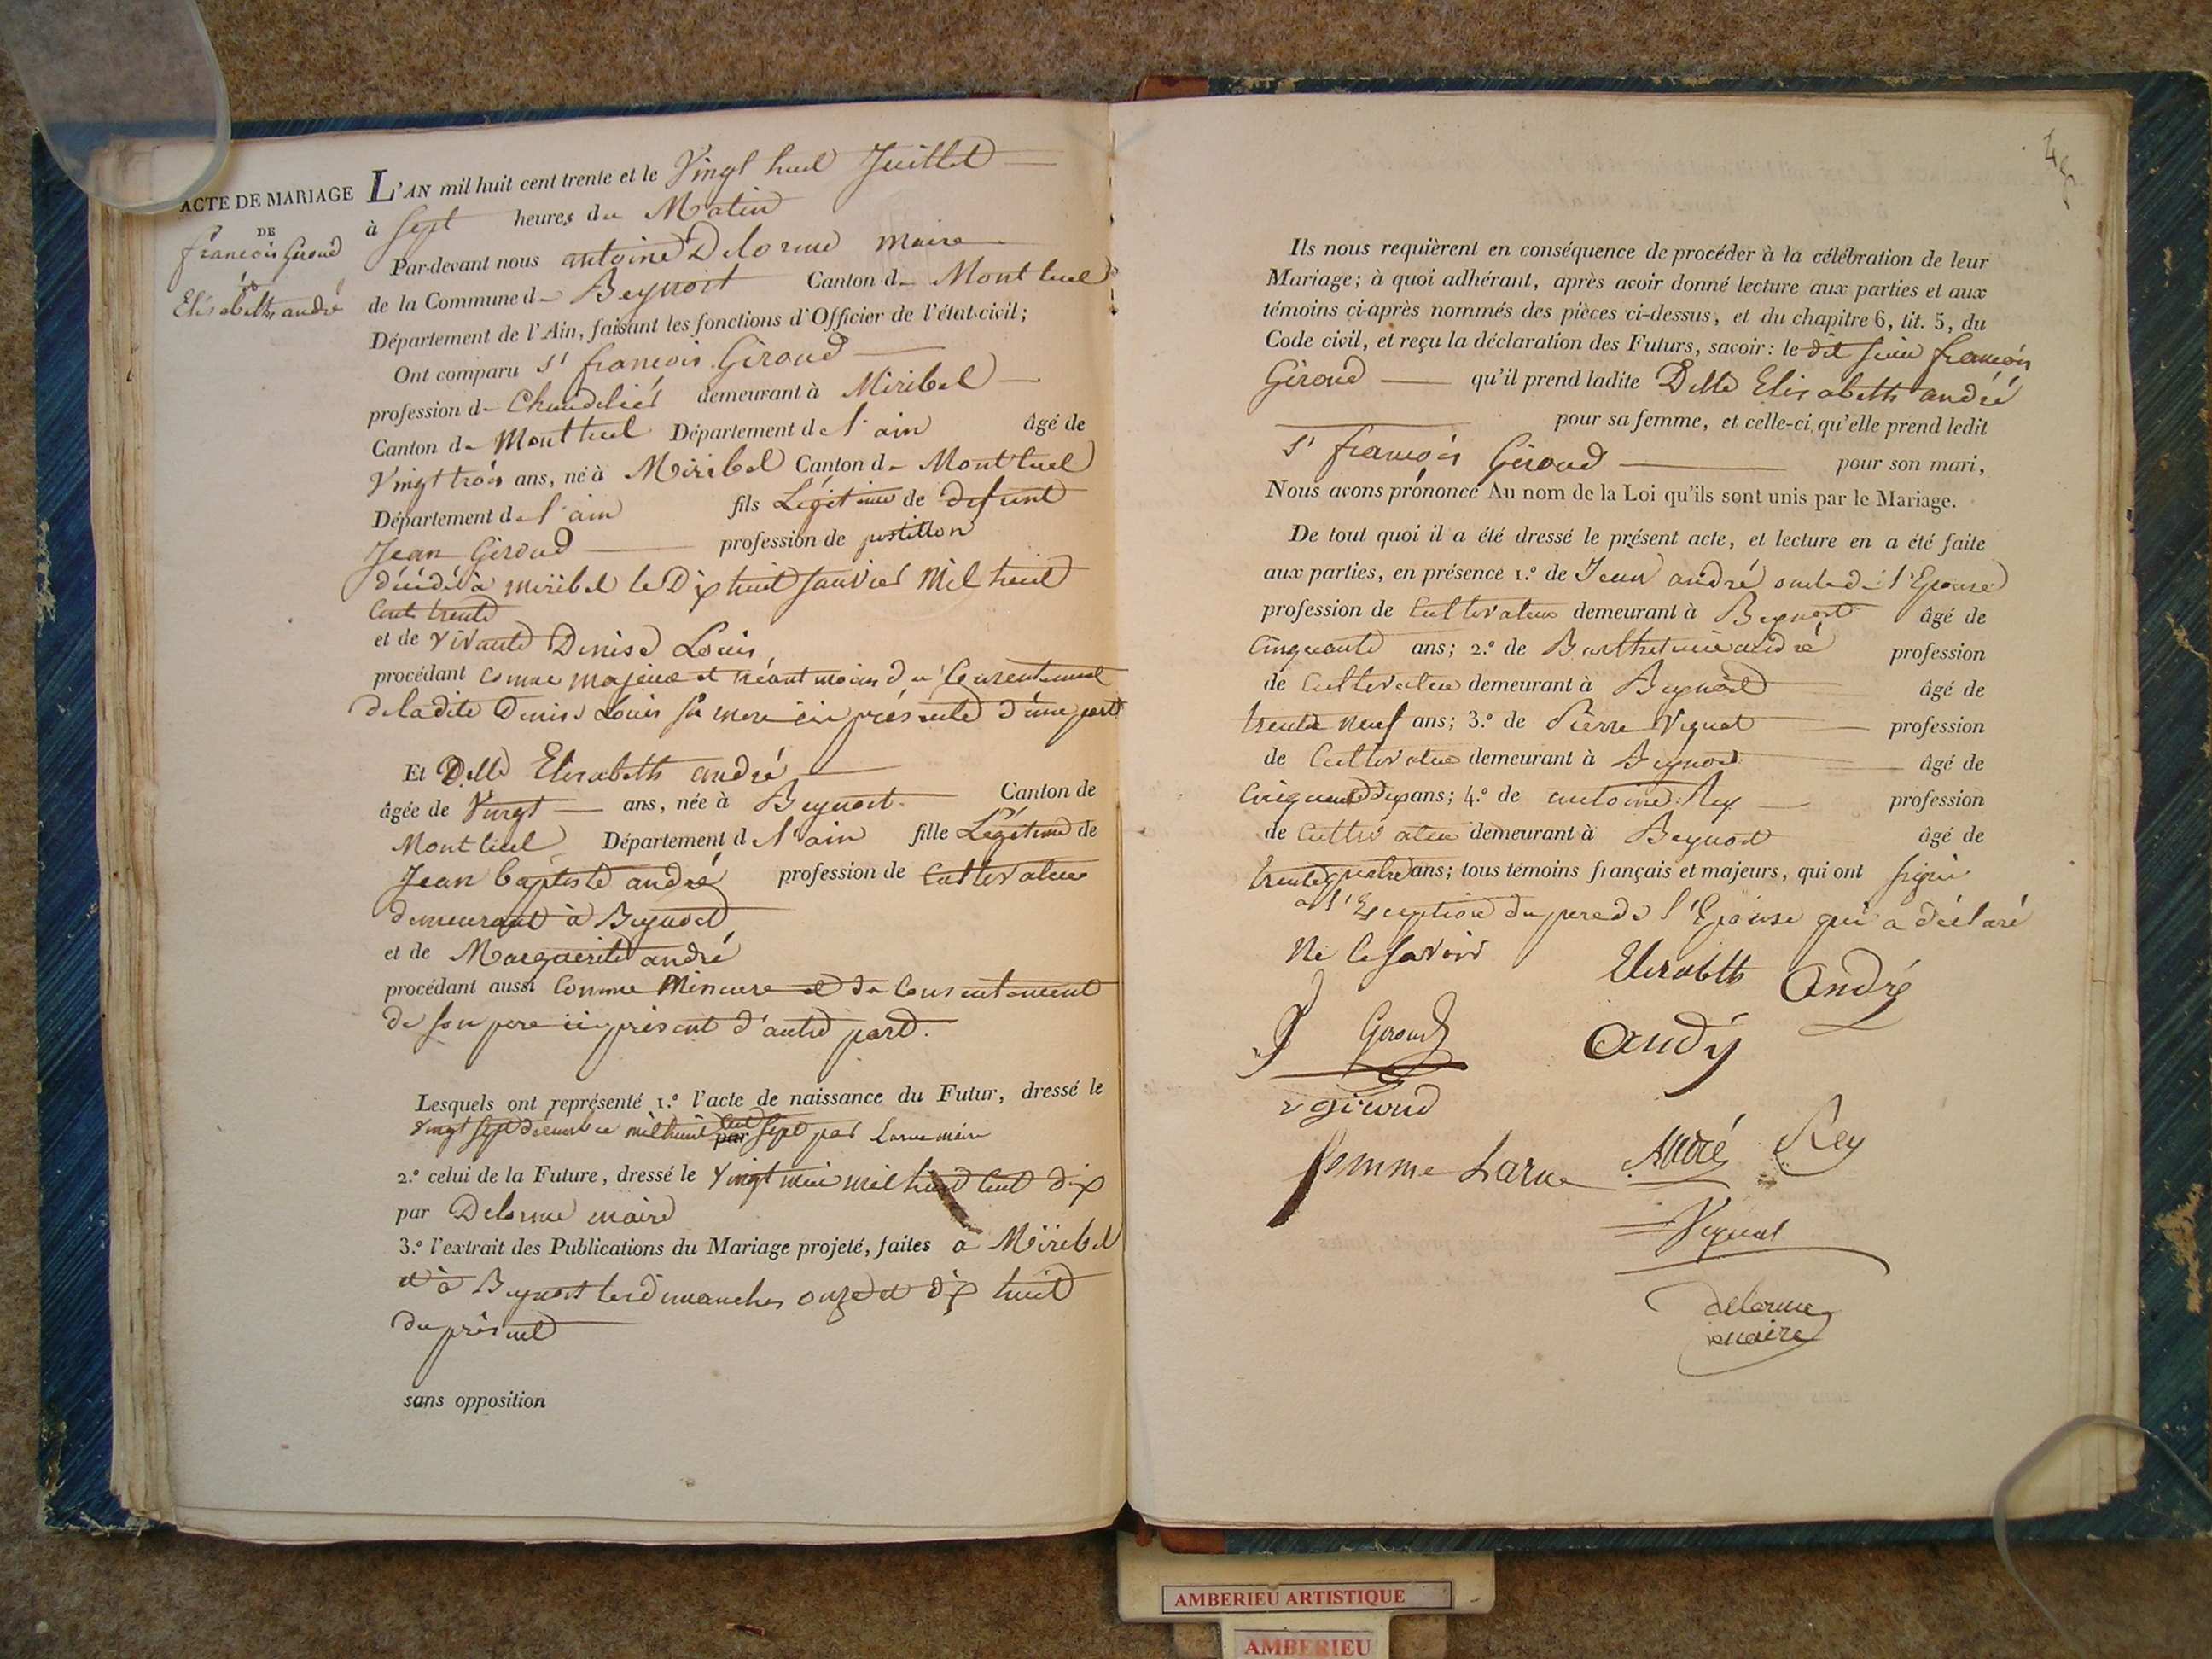 ACTE DE MARIAGE
DE
françois Giroud
et
Elisabeth andré
L'AN mil huit cent trente et le Vingt huit Juillet
à sept heures du Matin
Par-devant nous antoine Delorme maire
de la Commune d- Beynost Canton d- Montluel
Département de l'Ain, faisant les fonctions d'Officier de l'état-civil;
Ont comparu Sr françois Giroud
profession d- Chandelier demeurant à Miribel
Canton d- Montluel Département de l'ain âgé de
Vingt trois ans, né à Miribel Canton d- Montluel
Département de l'ain fils Légitime de defunt
Jean Giroud profession de postillon
décédé à miribel le Dix huit Janvier Mil huit
Cent trente
et de vivante Denise Louis
procédant comme majeur et néantmoins du Consentement
de ladite Denise Louis sa mere ici présente d'une part
Et Delle Elisabeth andré
âgée de Vingt ans, née à Beynost Canton de
Montluel Département d l'ain fille Légitime de
Jean baptiste andré profession de Cultivateur
demeurant à Beynost
et de Marguerite andré
procédant aussi Comme Mineure et du Consentement
de son pere ici présent d'autre part.
Lesquels ont représenté 1.º l'acte de naissance du Futur, dressé le
Vingt sept décembre mil huit cent sept par Larue maire
2.º celui de la Future, dressé le Vingt mai mil huit Cent dix
par Delorme maire
3.º l'extrait des Publications du Mariage projeté, faites à Miribel
et à Beynost les dimanches onze et dix huit
du présent
sans opposition
Ils nous requièrent en conséquence de procéder à la célébration de leur
Mariage; à quoi adhérant, après avoir donné lecture aux parties et aux
témoins ci-après nommés des pièces ci-dessus, et du chapitre 6, tit. 5, du
Code civil, et reçu la déclaration des Futurs, savoir: le dit françois
Giroud qu'il prend ladite Delle Elisabeth andré
pour sa femme, et celle-ci qu'elle prend ledit
Sr françois Giroud pour son mari,
Nous avons prononcé Au nom de la Loi qu'ils sont unis par le Mariage.
De tout quoi il a été dressé le présent acte, et lecture en a été faite
aux parties, en présence 1.º de Jean andré oncle de l'Epouse
profession de Cultivateur demeurant à Beynost âgé de
Cinquante ans; 2.º de Barthelemie andré profession
de Cultivateur demeurant à Beynost âgé de
trente neuf ans; 3.º de Pierre Vignat profession
de Cultivateur demeurant à Beynost âgé de
Cinquante dix ans; 4.º de antoine Rey profession
de Cultivateur demeurant à Beynost âgé de
trente quatre ans; tous témoins français et majeurs, qui ont signé
à l'Exception du pere de l'Epouse qui a déclaré
Ne le savoir
Elisabeth André
Giroud
Giroud
femme Larue
André Rey
Vignat
delorme
maire
AMBERIEU ARTISTIQUE
AMBERIEU